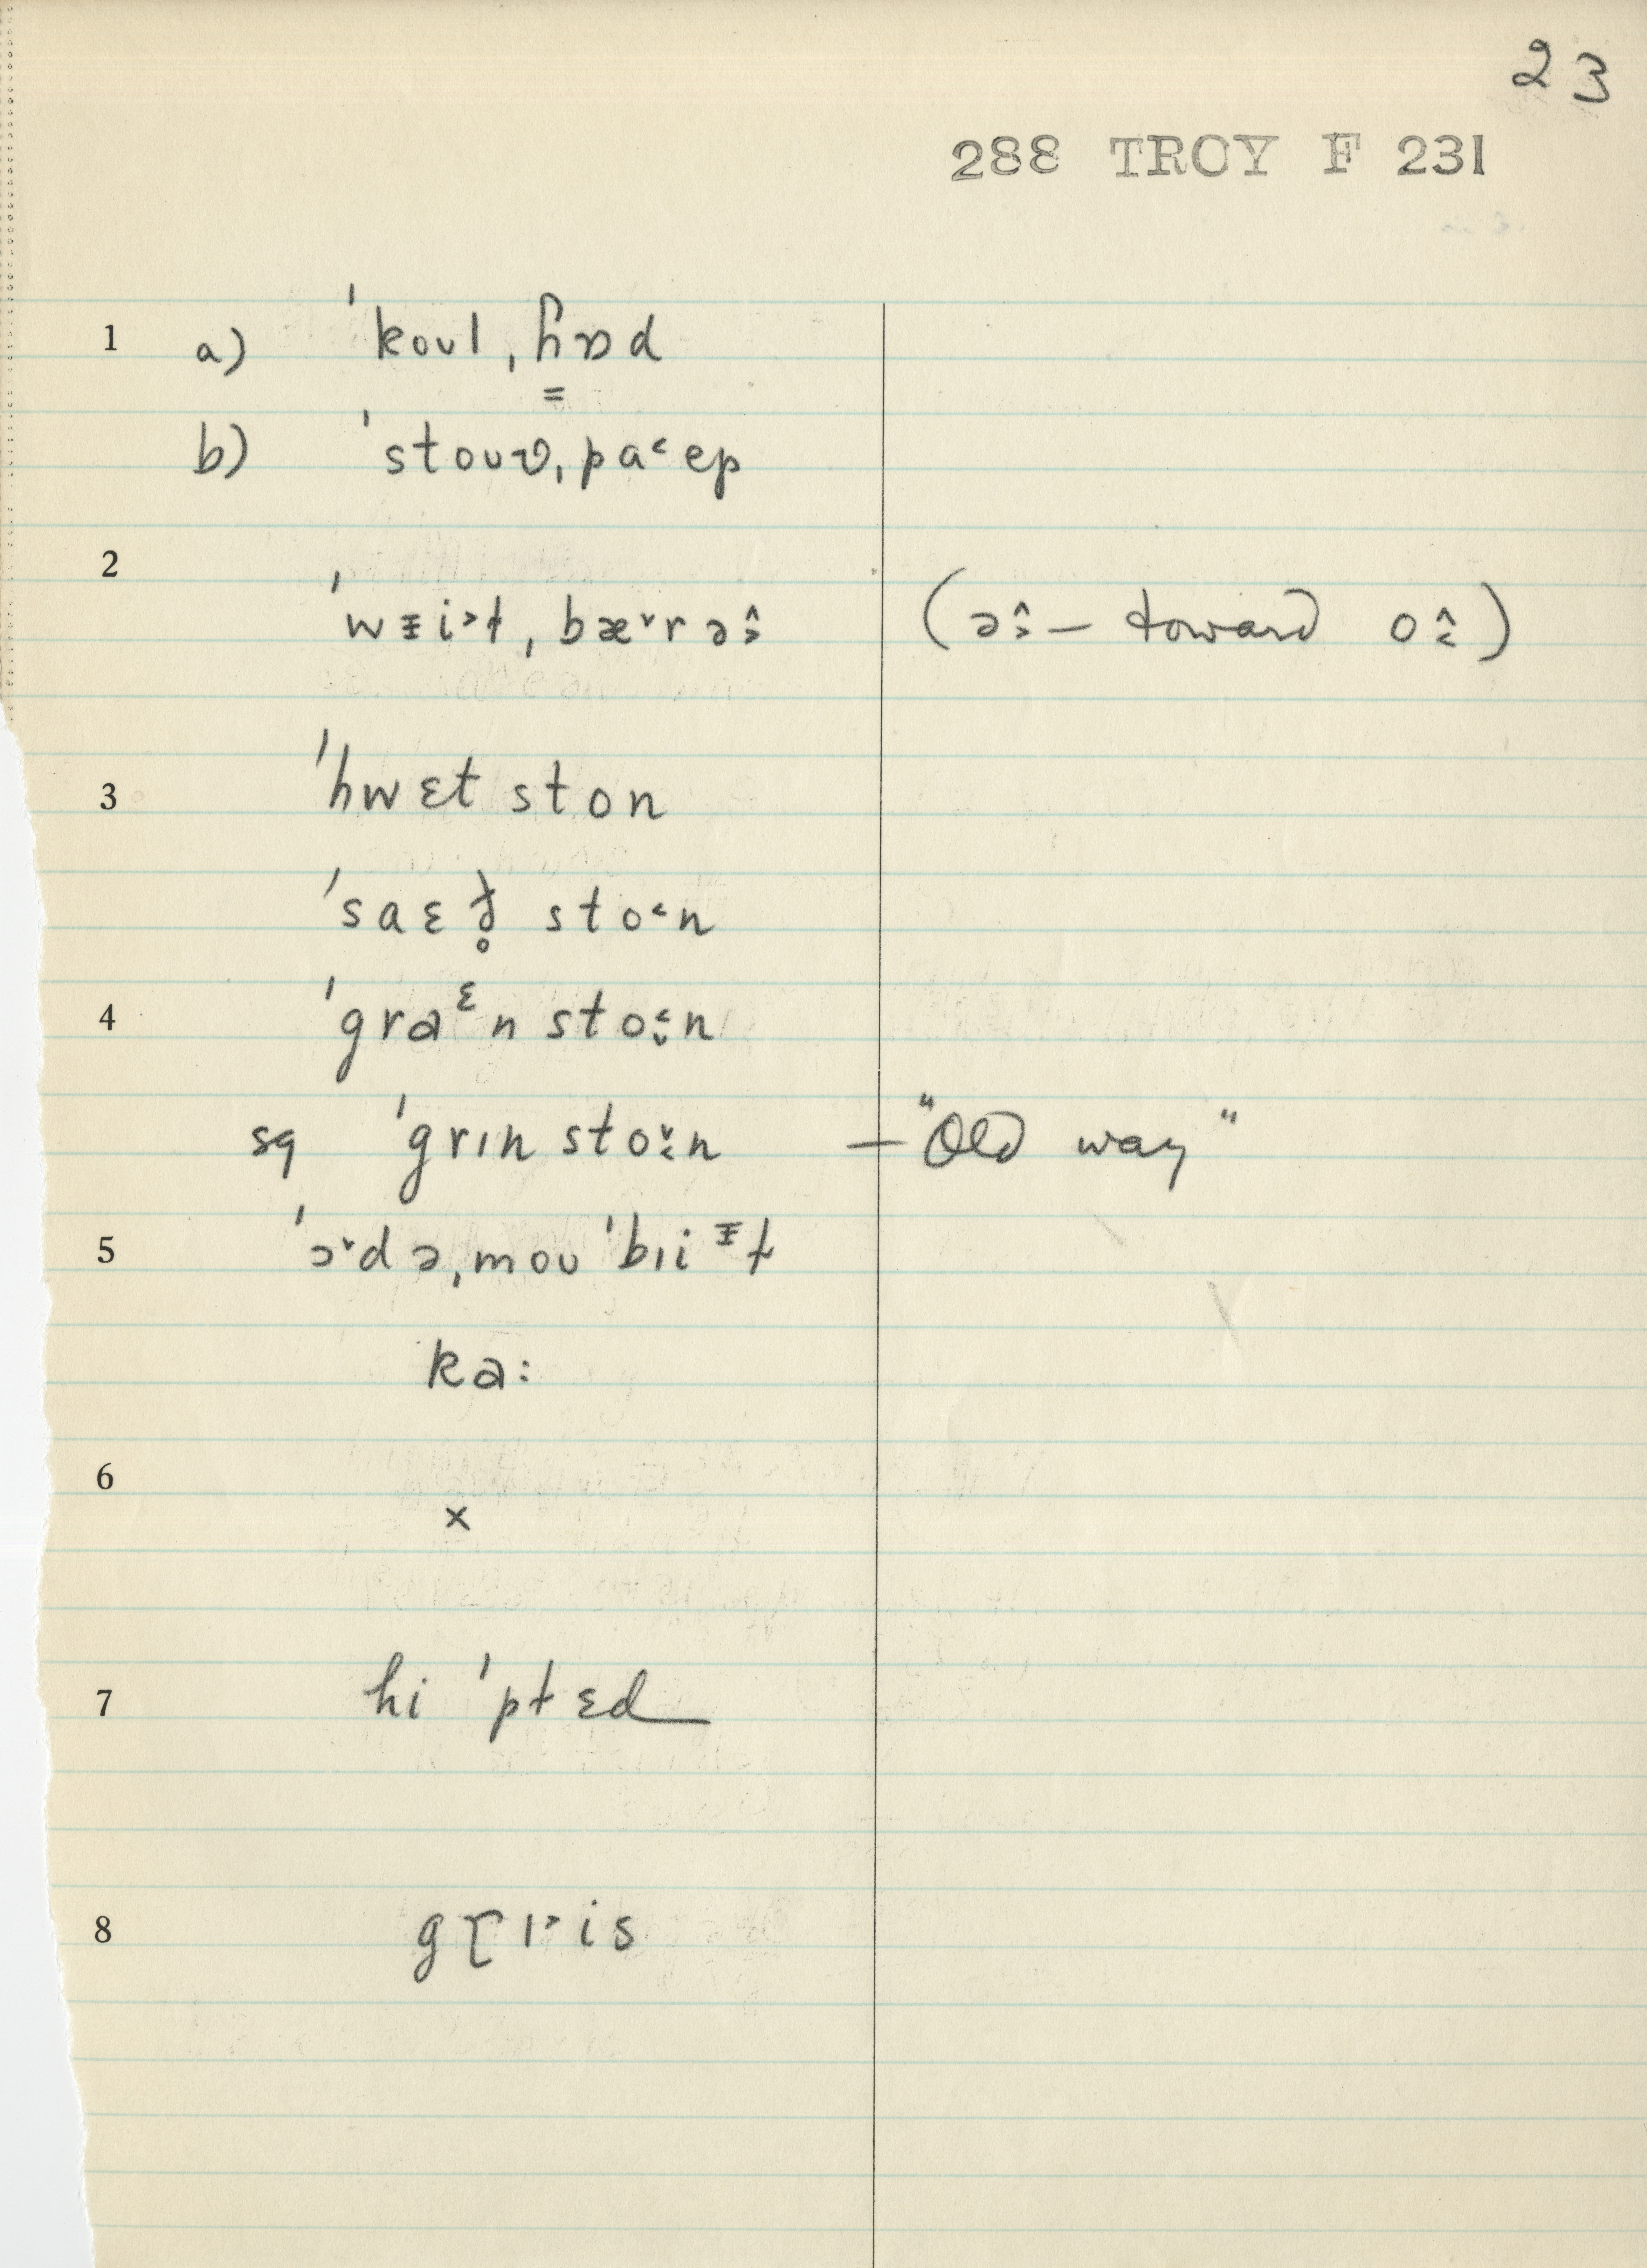 23
288 TROY F 231
1 a) ˈkoʊl ˌɦɒd
b) ˈstoʊʋ ˌpa˂ep
2 ˈwᵻi˃ɫ ˌbæ˅rə
(ə – toward o)
3 ˈhwɛt ston
ˈsaɛð̥ sto˂n
4 ˈgraᵋn sto˂̬n
sq ˈgrɪn sto˅̣n – "Old way"
5 ˈɔ˅də ˌmoʊˈbɪiᵻɫ
ka:
6 ×
7 hi ˈpɫɛd
8 gɽɪ˃is